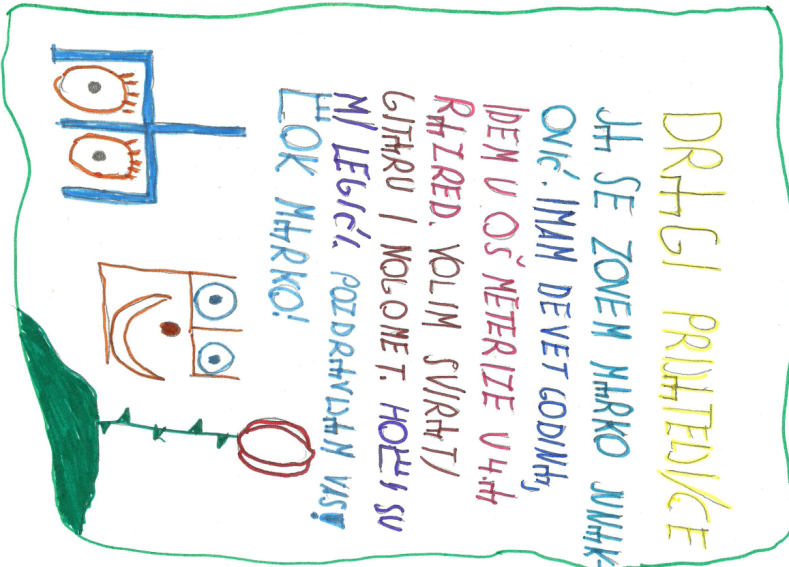 DRAGI PRIJATELJICE
JA SE ZOVEM MARKO JUNAK-
OVIĆ. IMAM DEVET GODINA,
IDEM U OŠ METERIZE U 4.A
RAZRED. VOLIM SVIRATI
GITARU I NOGOMET. HOBI SU
MI LEGIĆI. POZDRAVLJAM VAS!
BOK MARKO!